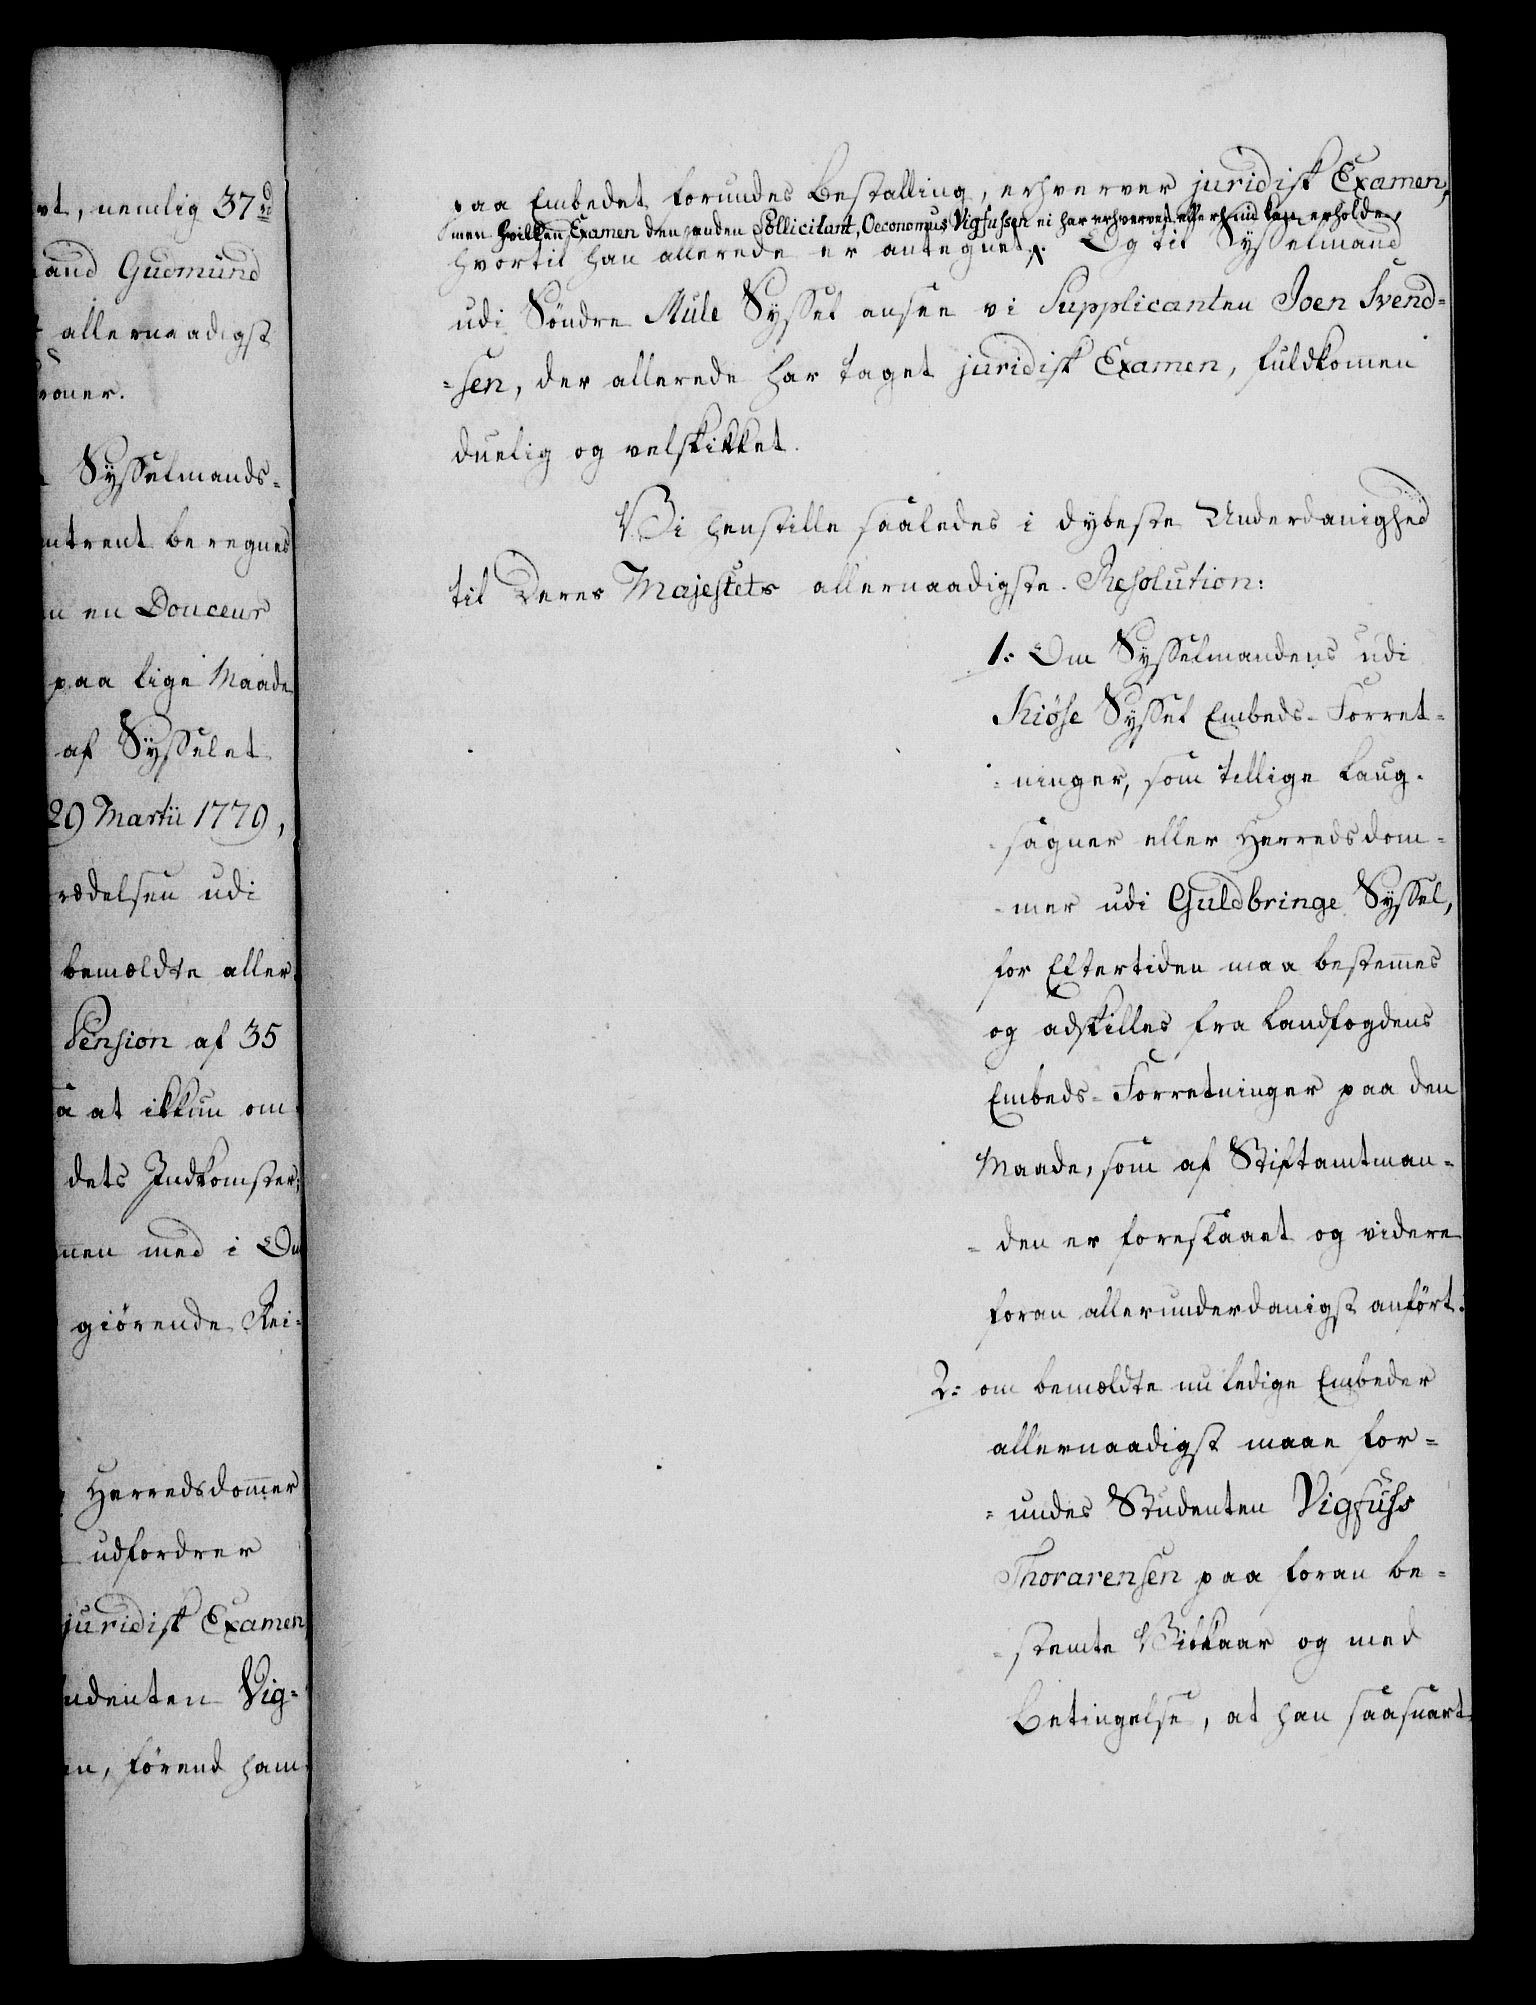 vt, nemlig 37 rd
and Gudmund
allernaadigst
roner.
Sysselmands-
mtrent beregnes
n en Douceur
paa lige Maade
af Sysselet
29 Martii 1779,
rædelsen udi
bemældte aller
Pension af 35
a at ikkun om
dets Indkomster,
men med i Om
giörende Rei-
Herredsdommer
udfordrer
juridisk Examen
udenten Vig-
en, förend ham
paa Embedet forundes Bestalling, erhverver juridisk Examen,
men hvilken Examen den anden Sollicitant, Oeconomus Vigfussen ei har erhvervet eller kan erholde,
hvortil han allerede er antegnet. Og til Sysselmand
udi Söndre Mule Syssel ansee vi Supplicanten Joen Svend-
-sen, der allerede har taget juridisk Examen, fuldkomen
duelig og velskikket.
Vi henstille saaledes i dybeste Underdanighed
til Deres Majestets allernaadigste Resolution:
1: Om Sysselmandens udi
Kiöse Syssel Embeds-Forret-
-ninger, som tillige Laug-
-sagner eller Herredsdom-
-mer udi Guldbringe Syssel,
for Eftertiden maa bestemes
og adskilles fra Landfogdens
Embeds-Forretninger paa den
Maade, som af Stiftamtman-
-den er foreslaaet og videre
foran allerunderdanigst anfört.
2: om bemældte nu ledige Embeder
allernaadigst maae for-
-undes Studenten Vigfuss
Thorarensen paa foran be-
-stemte Vilkaar og med
Betingelse, at han saasnart